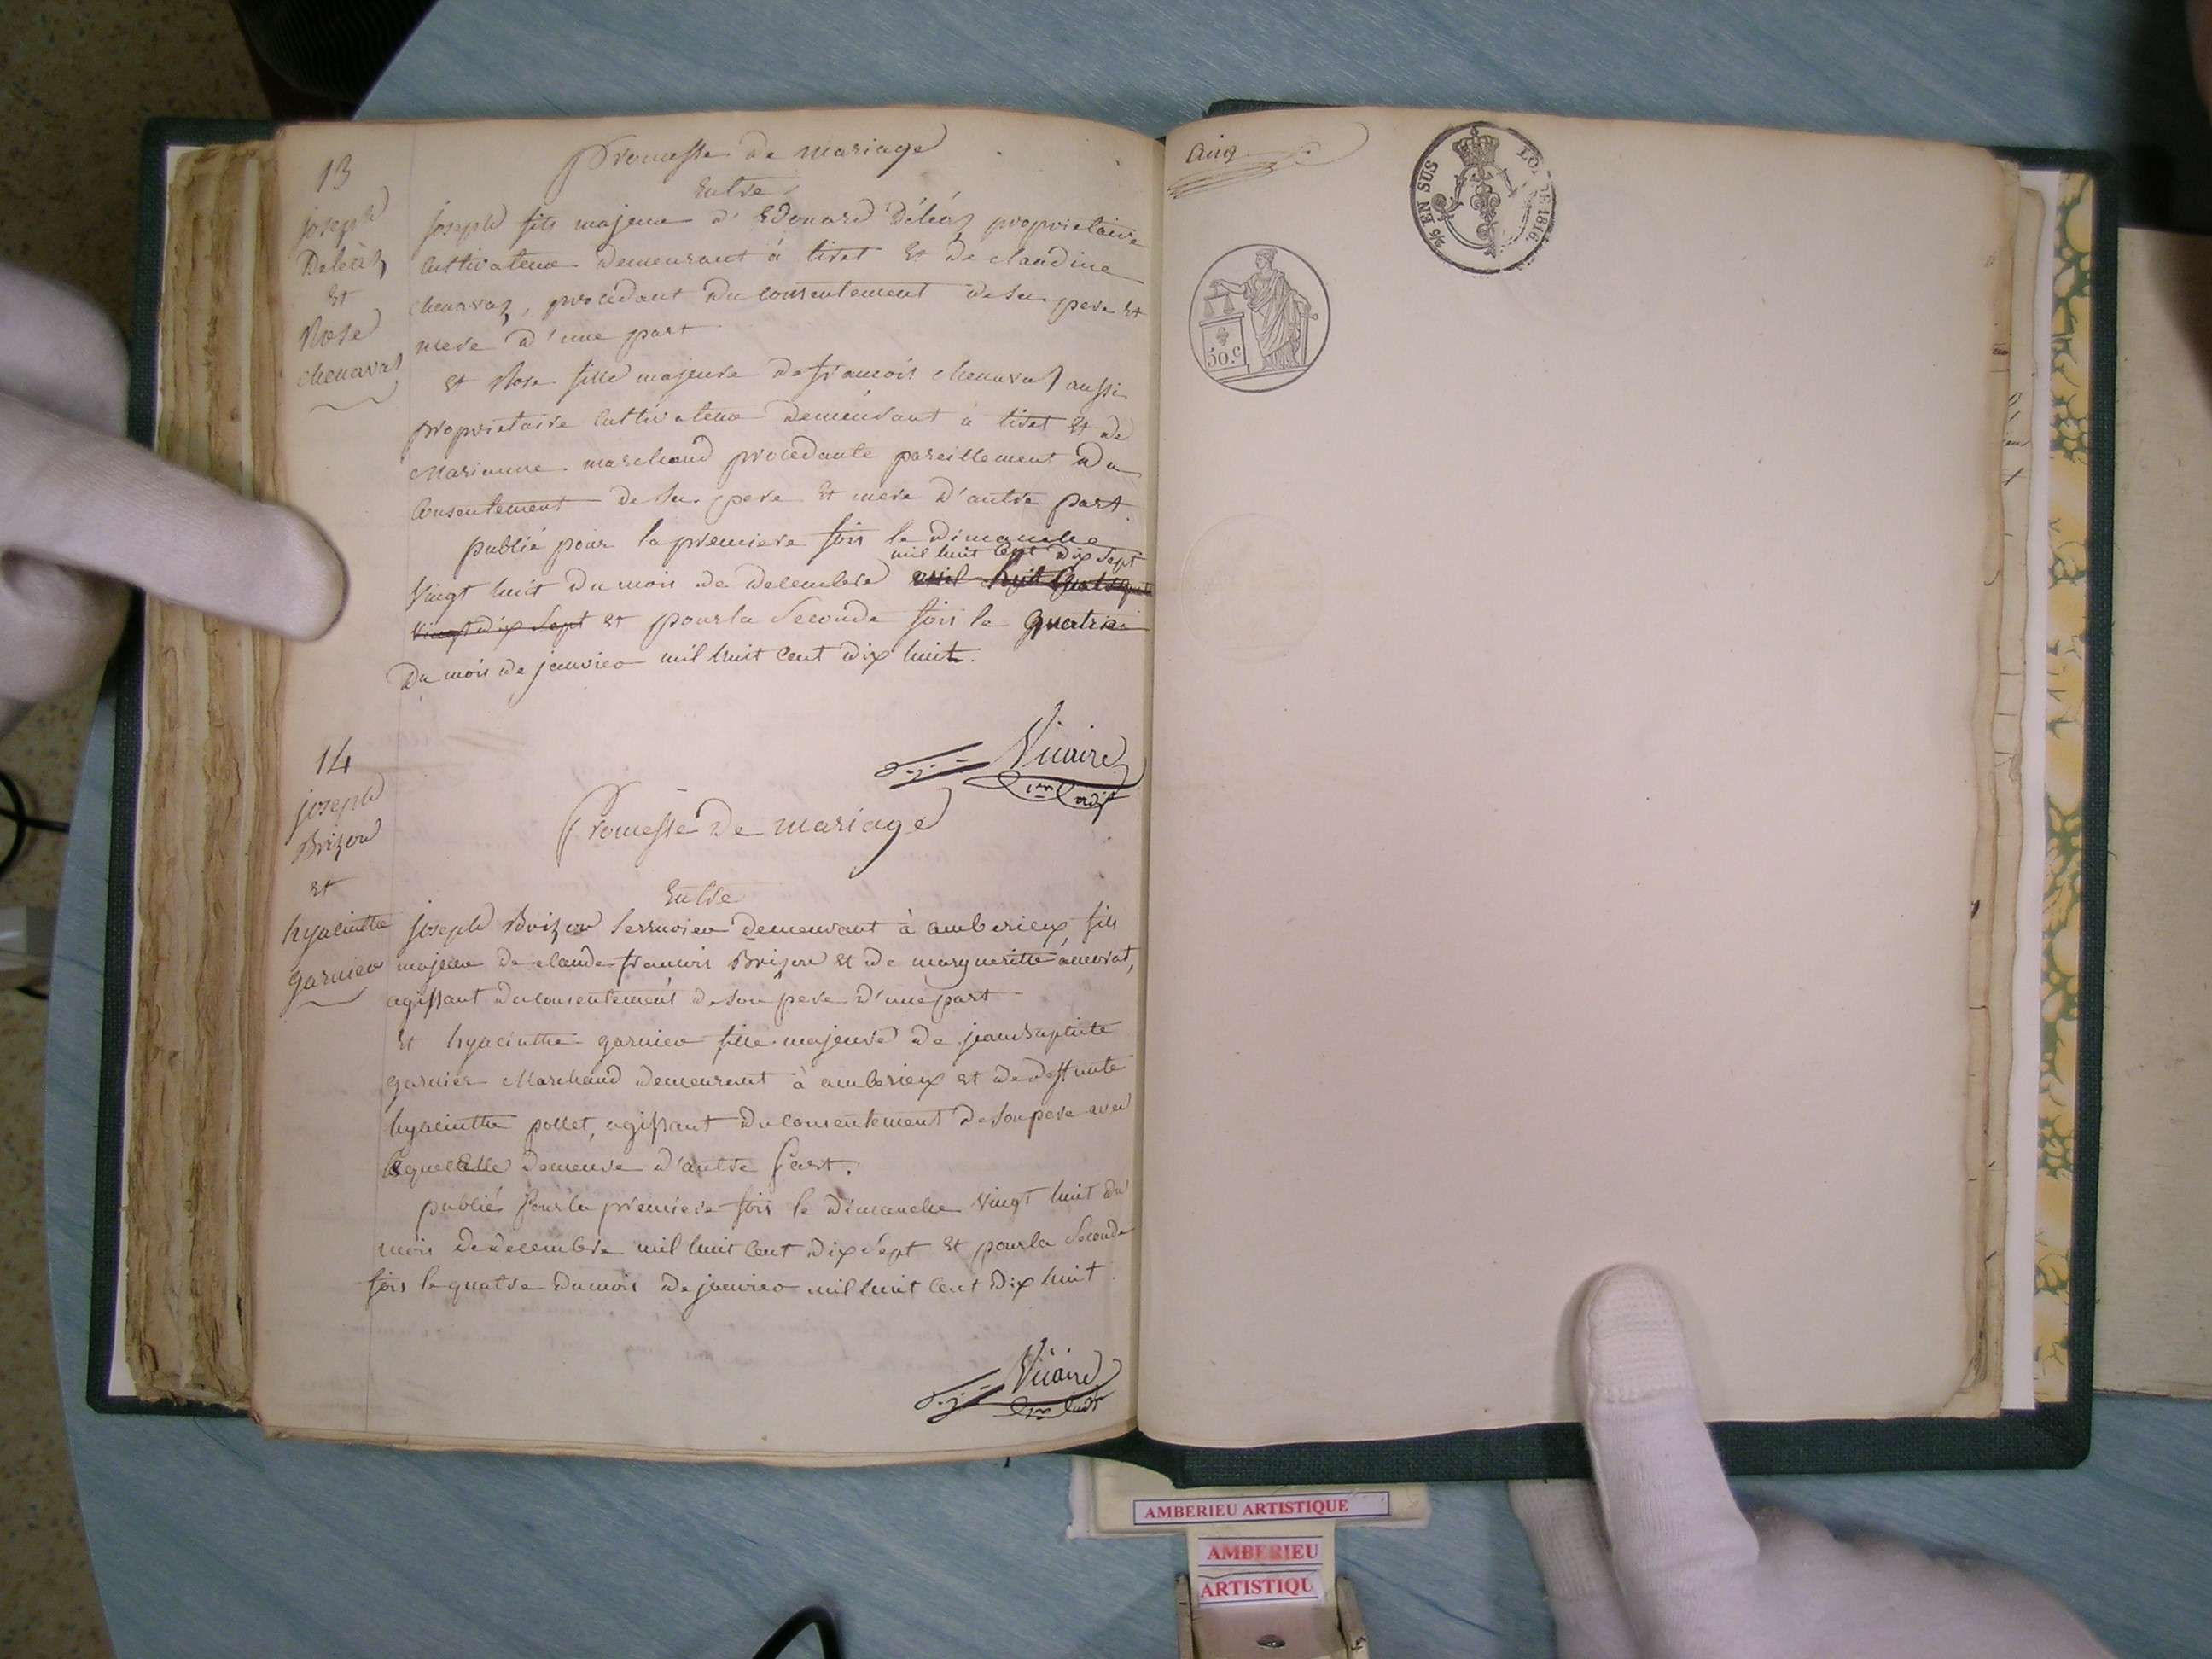 13
joseph
Deléaz
Et
Rose
chenavaz
Promesse de mariage
Entre
joseph fils majeur d'Edouard Déléaz proprietaire
Cultivateur demeurant à tiret Et de claudine
chenavaz, procédant du consentement de ses pere Et
mere d'une part
Et Rose fille majeure de francois chenavaz aussi
proprietaire Cultivateur demeurant à tiret Et de
Marianne marchand procédante pareillement du
Consentement de ses pere Et mere d'autre part.
publié pour la premiere fois le dimanche
mil huit Cent Dix Sept
Vingt huit du mois de decembre
Vingt dix Sept Et pour la Seconde fois le quatre
Du mois de janvier mil huit Cent dix huit.
Vicaire
1er adjt
14
joseph
Brizon
Et
hyacinthe
garnier
Promesse de mariage
Entre
joseph Brizon Serrurier demeurant à amberieux, fils
majeur de claude francois Brizon Et de margueritte
agissant du consentement de son pere d'une part
Et hyacinthe garnier fille majeure de jean baptiste
garnier Marchand demeurant à amberieux Et de deffunte
hyacinthe pollet, agissant du consentement de son pere avec
lequel Elle demeure d'autre part.
publié pour la premiere fois le dimanche Vingt huit du
mois de decembre mil huit Cent dix Sept Et pour la Seconde
fois le quatre du mois de janvier mil huit Cent Dix huit.
Vicaire
1er adjt
Ain
EN SUS
LOI DE 1816.
50.c
AMBERIEU ARTISTIQUE
AMBERIEU
ARTISTIQU